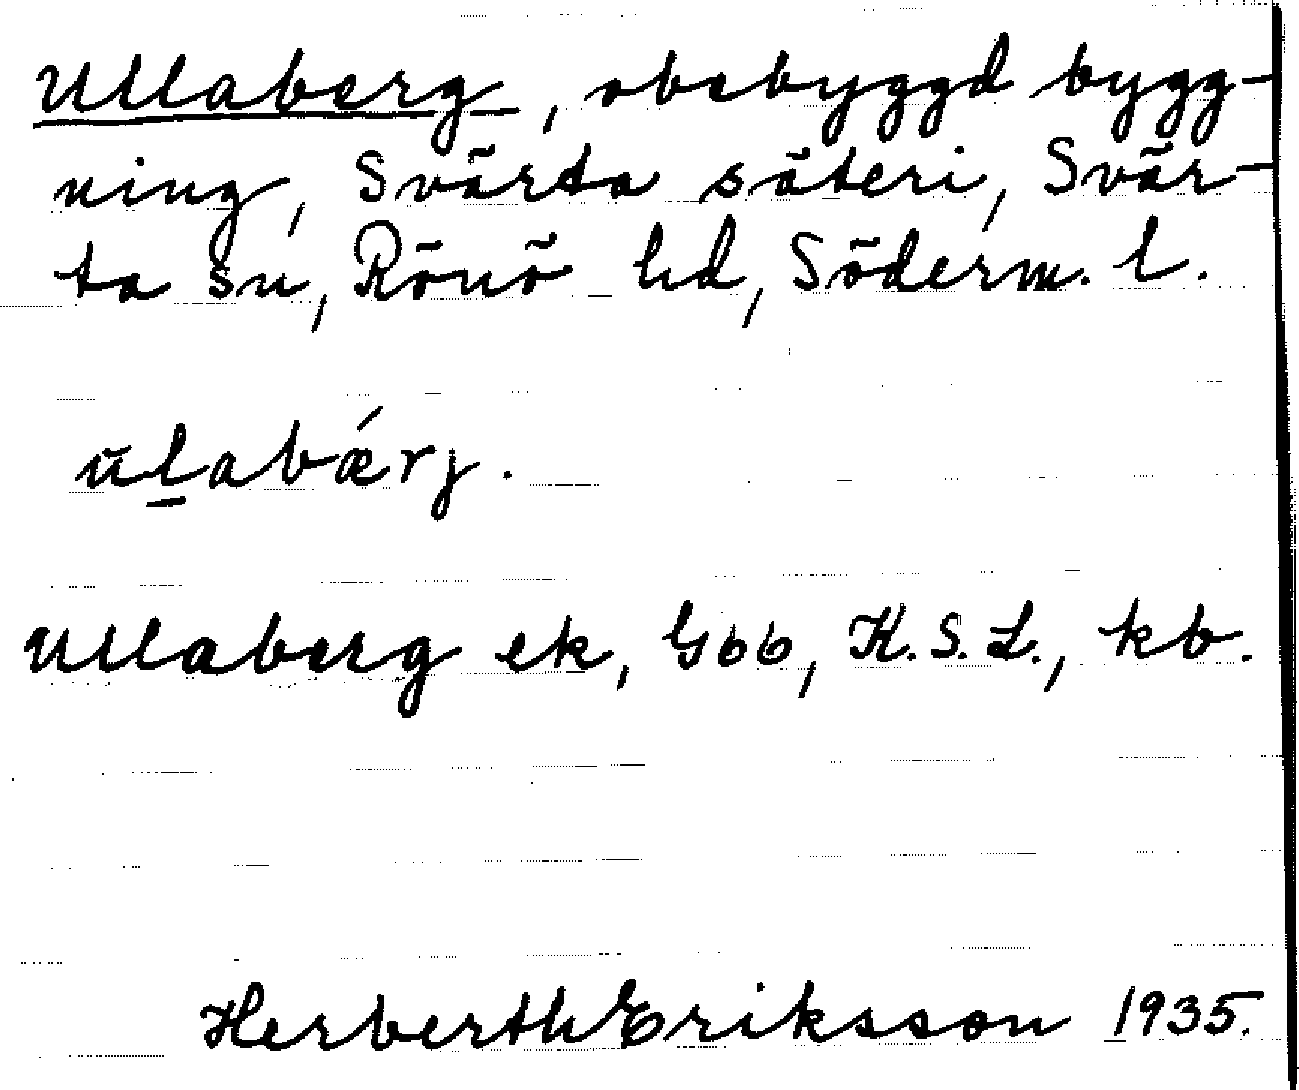 Ullaberg, obebyggd bygg-
ning, Svärta säteri, Svär-
ta sn, Rönö hd, Söderm. l.
ulabǽrj.
Ullaberg ek, Gbb, K.S.L., kb.
Herberth Eriksson 1935.